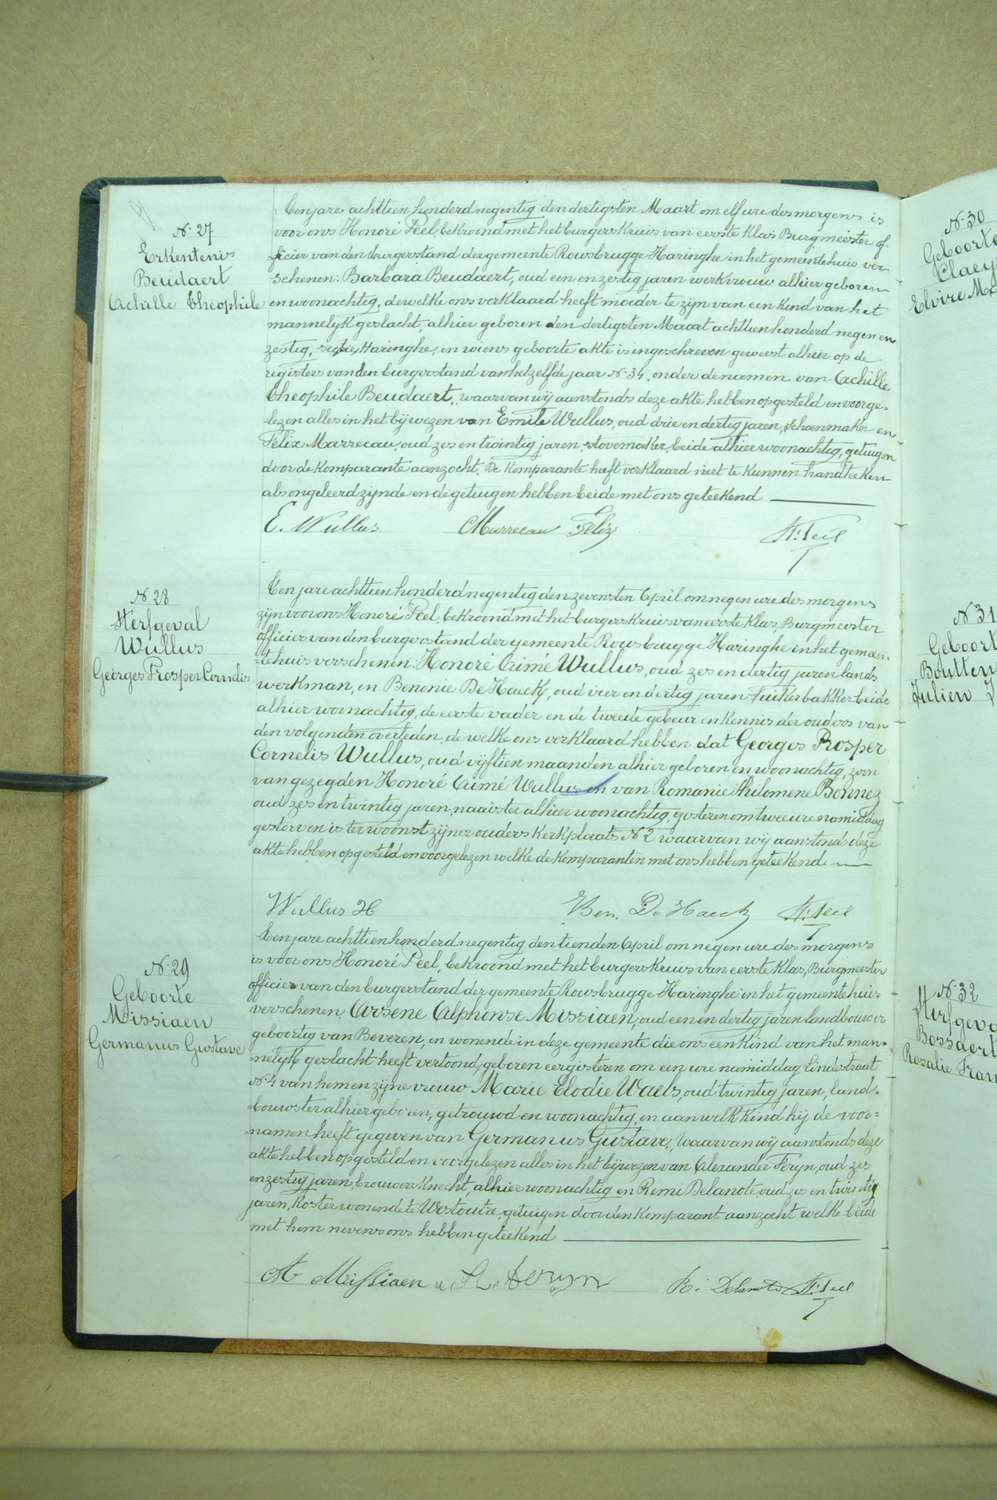 N. 27
Erkentenis
Beudaert
Achille Theophile
Ten jare achttien honderd negentig den dertigsten Maart om elf ure des morgens is
voor ons Honoré Peel, bekroond met het burgerskruis van eerste klas Burgmeester of-
ficier van den burgerstand der gemeente Rousbrugge Haringhe in het gemeentehuis ver-
schenen: Barbara Beudaert, oud een en zestig jaren werkvrouw alhier geboren
en woonachtig, dewelke ons verklaard heeft moeder te zijn van een kind van het
mannelijk geslacht, alhier geboren den dertigsten Maart achttien honderd negen en
zestig, Haringhe, en wiens geboorte akte is ingeschreven geweest alhier op de
registers van den burgerstand van hetzelfde jaar N. 34, onder de namen van Achille
Theophile Beudaert, waarvan wij aanstonds deze akte hebben opgesteld en voorge-
lezen alles in het bijwezen van Emile Wullus, oud drie en dertig jaren, schoenmaker en
Felix Marrecau, oud zes en twintig jaren, stovemaker, beide alhier woonachtig, getuigen
door de komparante aanzocht. De komparante heeft verklaard niet te kunnen handteeken
als ongeleerd zijnde en de getuigen hebben beide met ons geteekend
E. Wullus Marrecau Felix H. Peel
N. 28
Sterfgeval
Wullus
Georges Prosper Cornelis
Ten jare achttien honderd negentig den zevensten April om negen ure des morgens
zijn voor ons Honoré Peel, bekroond met het burgerskruis van eerste klas, Burgmeester
officier van den burgerstand der gemeente Rousbrugge Haringhe in het gemeen-
tehuis verschenen: Honoré Crimé Wullus, oud zes en dertig jaren lands
werkman, en Benonie De Haeck, oud vier en dertig jaren suikerbakker beide
alhier woonachtig, de eerste vader en de tweede gebeur en kennis der ouders van
den volgenden overleden, de welke ons verklaard hebben dat Georges Prosper
Cornelis Wullus, oud vijftien maanden alhier geboren en woonachtig, zoon
van gezegden Honoré Crimé Wullus en van Romanie Philomene Bonnez
oud zes en twintig jaren, naaister alhier woonachtig, gisteren om twee ure namiddag
gestorven is ter woonst zijner ouders Kerkplaats N. 2 waarvan wij aanstonds deze
akte hebben opgesteld en voorgelezen welke de komparanten met ons hebben geteekend
Wullus H Ben. De Haeck H. Peel
N. 29
Geboorte
Missiaen
Germanus Gustave
Ten jare achttien honderd negentig den tienden April om negen ure des morgens
is voor ons Honoré Peel, bekroond met het burgerskruis van eerste klas, Burgmeester
officier van den burgerstand der gemeente Rousbrugge Haringhe in het gemeentehuis
verschenen, Arsene Alphonse Missiaen, oud een en dertig jaren landbouwer
geboortig van Beveren, en wonende in deze gemeente die ons een kind van het man-
nelijk geslacht heeft vertoond, geboren eergisteren om een ure namiddag Lindestraat
N. 4 van hem en zijne vrouw Marie Elodie Waels, oud twintig jaren, land-
bouwster alhier geboren, getrouwd en woonachtig, en aan welk kind hij de voor-
namen heeft gegeven van Germanus Gustave, waarvan wij aanstonds deze
akte hebben opgesteld en voorgelezen alles in het bijwezen van Alexander Feryn, oud zes
en zestig jaren, brouwers knecht, alhier woonachtig en Remi Delanote, oud zes en twintig
jaren, koster wonende te Westoutre, getuigen door den komparant aanzocht welke beide
met hem nevens ons hebben geteekend
A Missiaen R. Delanote H. Peel
N. 30
Geboorte
Claey
Elvire Ma
N. 31
Geboort
Boutten
Julien
N. 32
Sterfgeva
Bossaert
Rosalie Fran